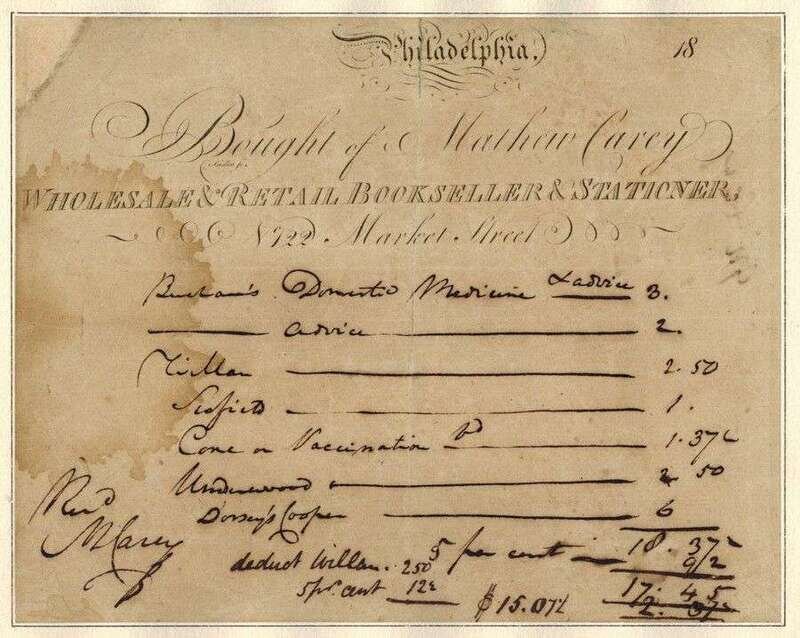 Philadelphia, 18
Bought of Mathew Carey
WHOLESALE & RETAIL BOOKSELLER & STATIONER,
No. 122 Market Street
Buchan's Domestic Medicine & advice 3.
advice 2.
Willan 2.50
1.
on Vaccination bd 1.37½
Underwood 2 50
Dorsey's Cooper 6
18.37½
5 per cent 9/2
17.45
deduct Willan. 250
5 pr. cent 12½
2.37½
$15.07½
Recd
M Carey